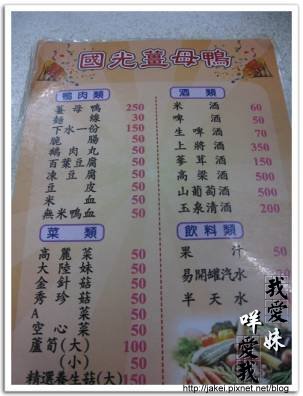 國光薑母鴨
鴨肉類
薑母鴨 250
麵線 30
下水一份 150
脆腸 50
鵝肉丸 50
百葉豆腐 50
凍豆腐 50
豆皮 50
米血 50
無米鴨血 50
菜類
高麗菜 50
大陸妹 50
金針菇 50
秀珍菇 50
A菜 50
空心菜 50
蘆筍(大) 100
(小) 50
精選養生菇(大) 150
酒類
米酒 60
啤酒 50
生啤酒 70
上將酒 350
蔘茸酒 150
高粱酒 500
山葡萄酒 500
玉泉清酒 200
飲料類
果汁 50
易開罐汽水
半天水
我愛咩妹愛我
http://jakei.pixnet.net/blog